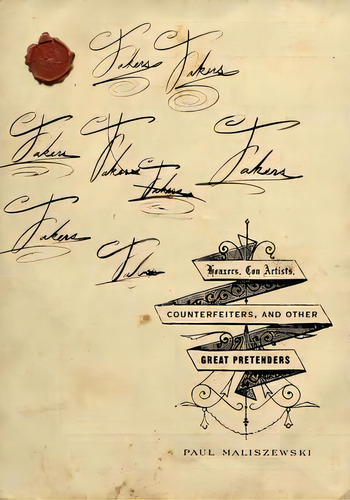 Fakers Fakers
Fakers Fakers Fakers Fakers
Fakers
Fakers
Hoaxers, Con Artists,
COUNTERFEITERS, AND OTHER
GREAT PRETENDERS
PAUL MALISZEWSKI